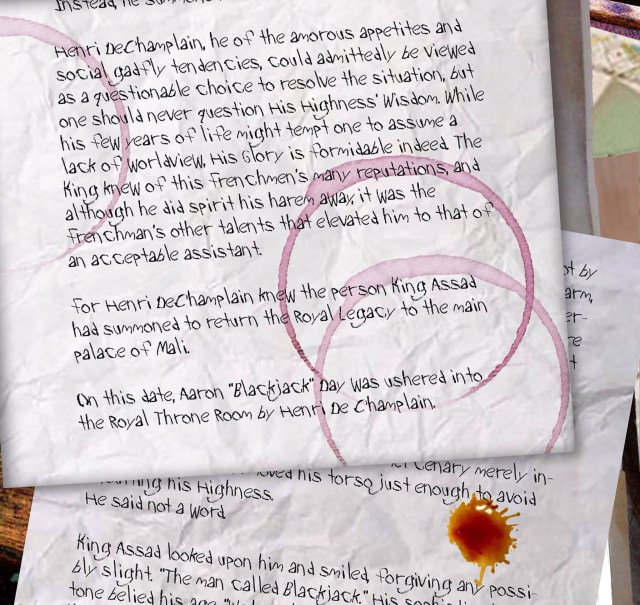 Instead, he
Henri DeChamplain, he of the amorous appetites and
social gadfly tendencies, could admittedly be viewed
as a questionable choice to resolve the situation, but
one should never question His Highness' wisdom. While
his few years of life might tempt one to assume a
lack of worldview, His Glory is formidable indeed. The
King knew of this Frenchmen's many reputations, and
although he did spirit his harem away, it was the
Frenchman's other talents that elevated him to that of
an acceptable assistant.
For Henri DeChamplain knew the person King Assad
had summoned to return the Royal Legacy to the main
palace of Mali.
On this date, Aaron "Blackjack" Day was ushered into
the Royal Throne Room by Henri De Champlain.
by
arm,
er-
re
t
cenary merely in-
his Highness. his torso just enough to avoid
He said not a word
King Assad looked upon him and smiled, forgiving any possi-
bly slight. "The man called Blackjack." His
tone belied his age.